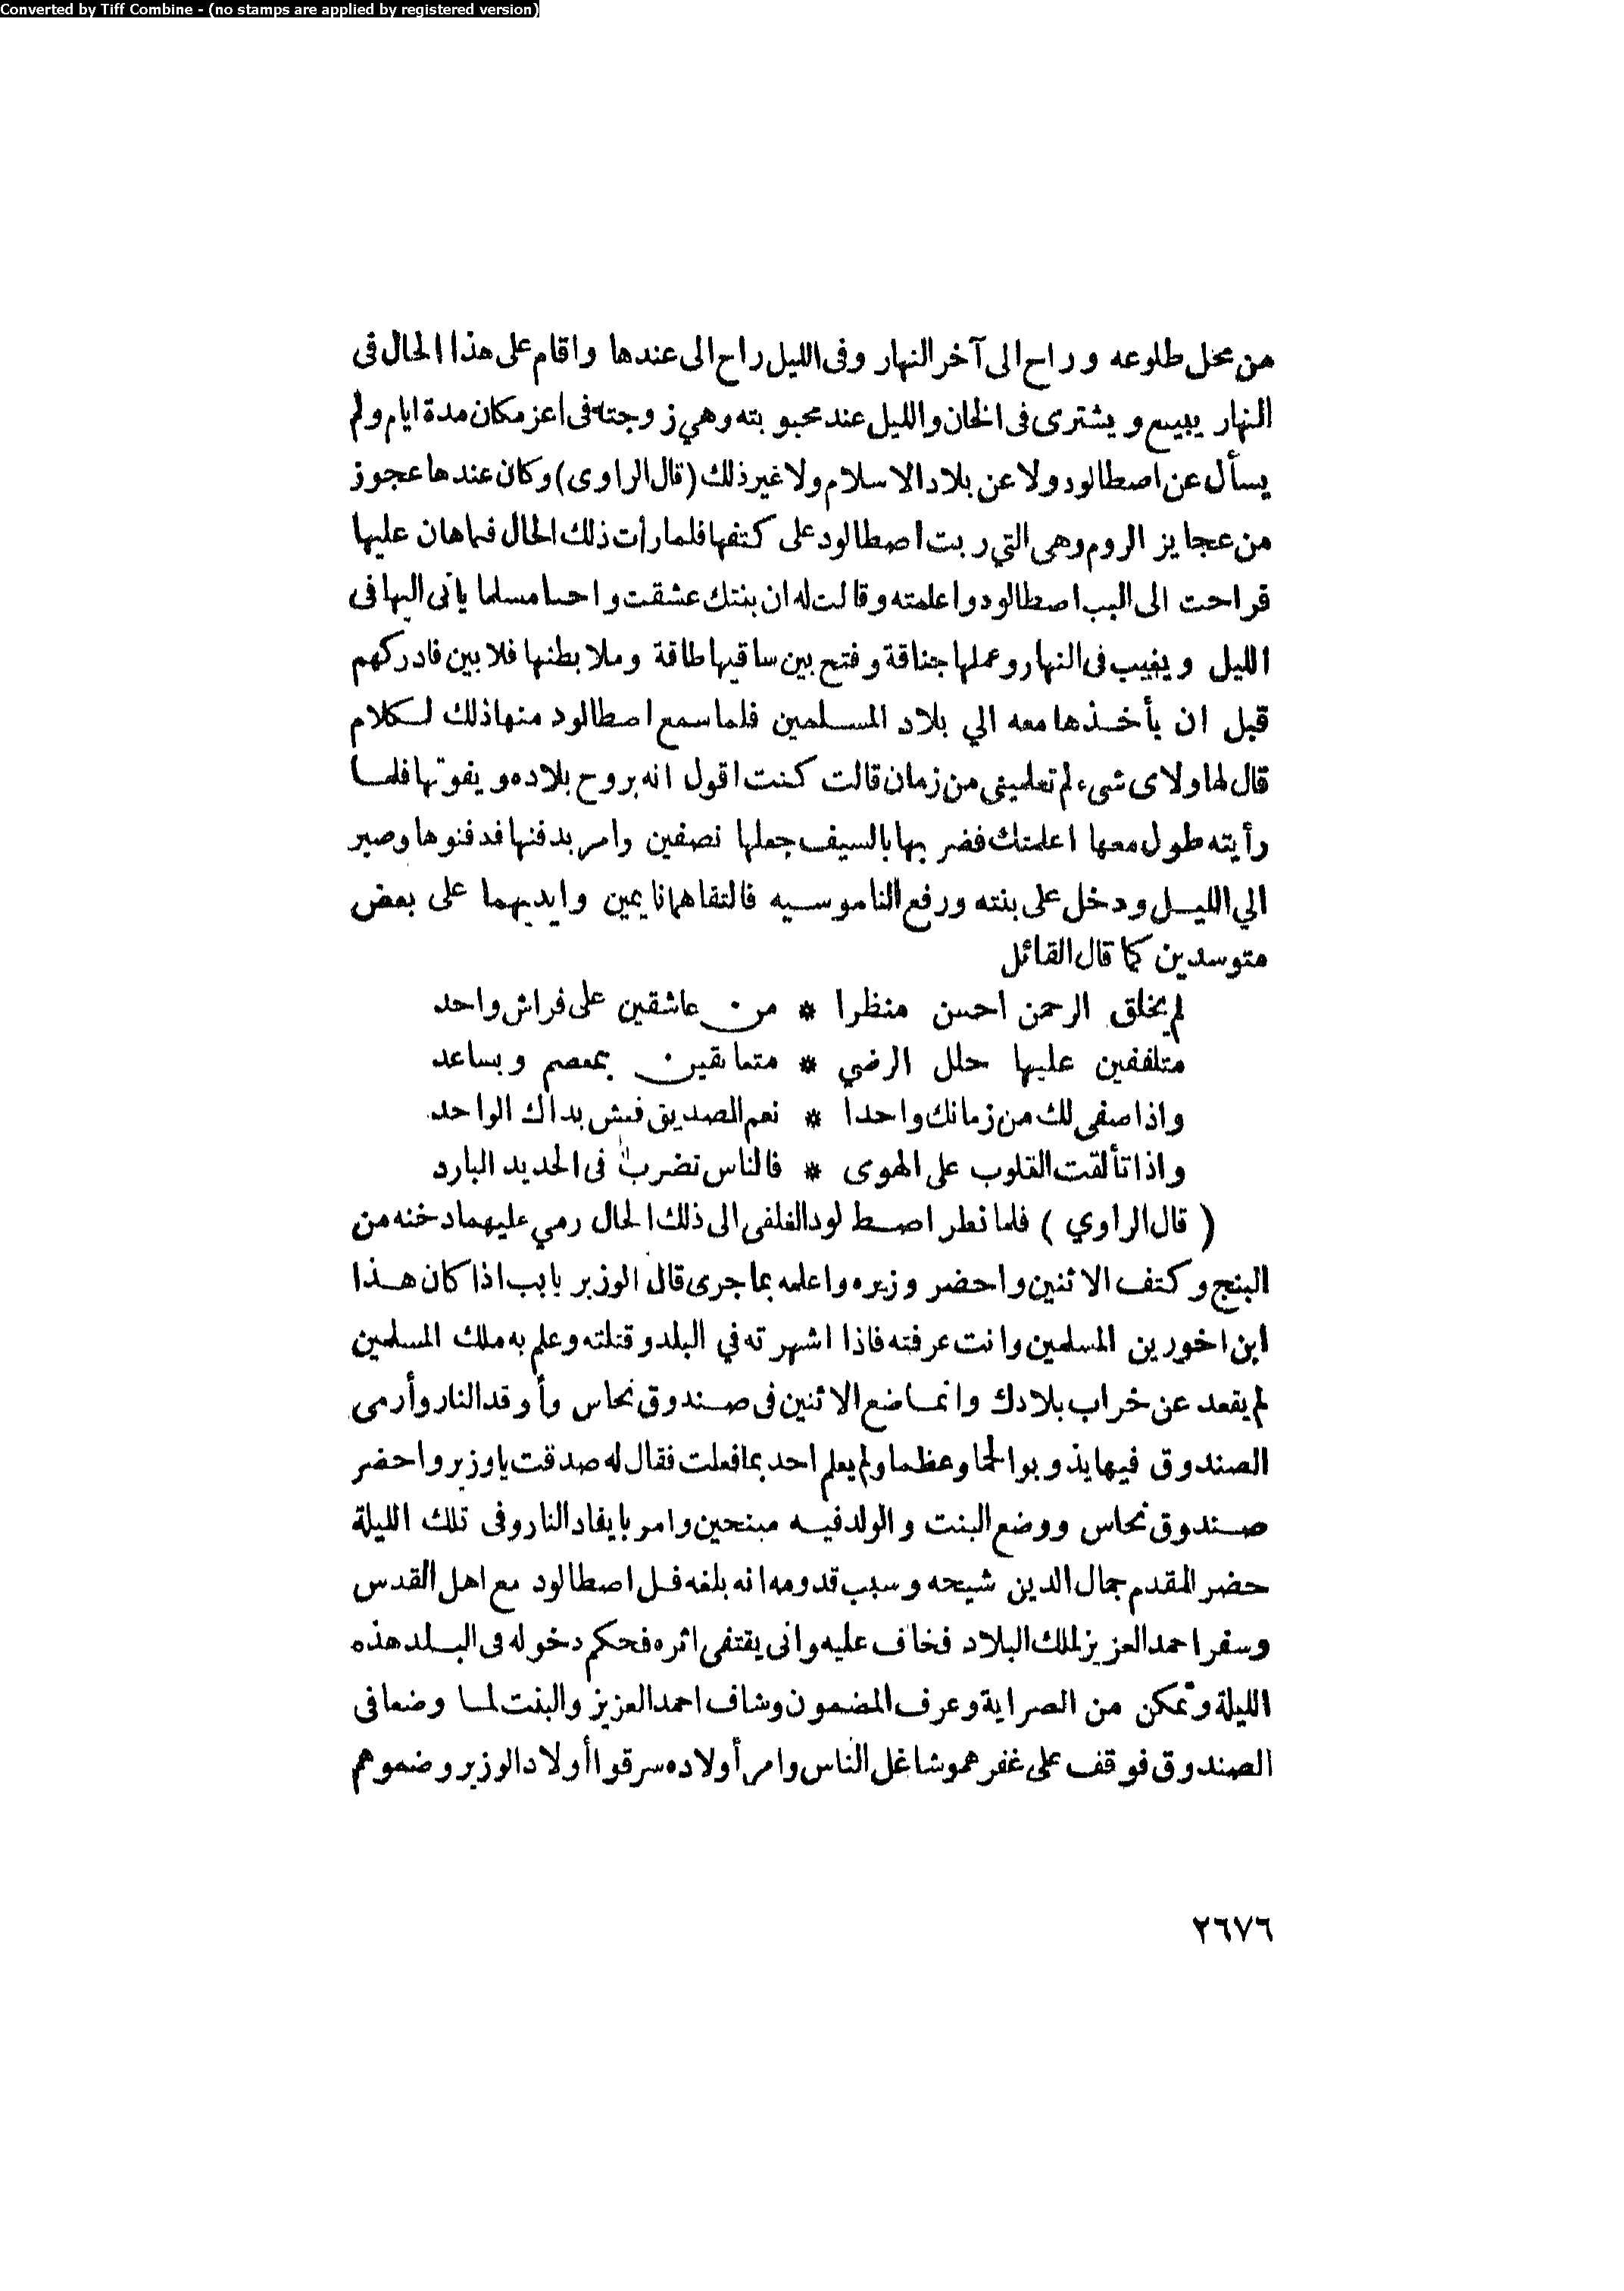 Converted by Tiff Combine - (no stamps are applied by registered version)
من محل طلوعه وراح الى آخر النهار وفى الليل راح الى عندها واقام على هذا الحال فى
النهار يبيع ويشترى فى الخان والليل عند محبوبته وهي زوجته فى اعز مكان مدة ايام ولم
يسأل عن اصطالود ولا عن بلاد الاسلام ولا غير ذلك (قال الراوى) وكان عندها عجوز
من عجايز الروم وهى التي ربت اصطالود على كتفها فلما رأت ذلك الحال فما هان عليها
فراحت الى البب اصطالود واعلمته وقالت له ان بنتك عشقت واحسا مسلما يأتى اليها فى
الليل ويغيب فى النهار وعملها جناقة وفتح بين ساقيها طاقة وملا بطنها فلابين فادركهم
قبل ان يأخذها معه الي بلاد المسلمين فلما سمع اصطالود منها ذلك لكلام
قال لها ولاى شىء لم تعلمينى من زمان قالت كنت اقول انه يروح بلاده ويفوتها فلما
رأيته طول معها اعلمتك فضربها بالسيف جعلها نصفين وامر بدفنها فدفنوها وصبر
الي الليل ودخل على بنته ورفع الناموسيه فالتقاهما نايمين وايديهما على بعض
متوسدين كما قال القائل
لم يخلق الرحمن احسن منظرا * من عاشقين على فراش واحد
متلففين عليها حلل الرضي * متعانقين بمعصم وبساعد
واذا صفى لك من زمانك واحدا * نعم الصديق فعش بداك الواحد
واذا تألفت القلوب على الهوى * فالناس تضرب فى الحديد البارد
(قال الراوي) فلما نطر اصط لود الغلفى الى ذلك الحال رمي عليهما دخنه من
البنج وكتف الاثنين واحضر وزيره واعلمه بما جرى قال الوزير يابب اذا كان هذا
ابن اخورين المسلمين وانت عرفته فاذا اشهرته في البلد وقتلته وعلم به ملك المسلمين
لم يقعد عن خراب بلادك وانما ضع الاثنين فى صندوق نحاس وأوقد النار وأرمى
الصندوق فيها يذوبوا لحما وعظما ولم يعلم احد بما فعلت فقال له صدقت ياوزير واحضر
صندوق نحاس ووضع البنت والولد فيه مبنجين وامر بايقاد النار وفى تلك الليلة
حضر المقدم جمال الدين شيحه وسبب قدومه انه بلغه فعل اصطالود مع اهل القدس
وسفر احمد العزيز لملك البلاد فخاف عليه واتى يقتفى اثره فحكم دخوله فى البلد هذه
الليلة وتمكن من الصراية وعرف المضمون وشاف احمد العزيز والبنت لما وضعا فى
الصندوق فوقف على غفرهم وشاغل الناس وامر أولاده سرقوا أولاد الوزير وضموهم
٢٦٧٦